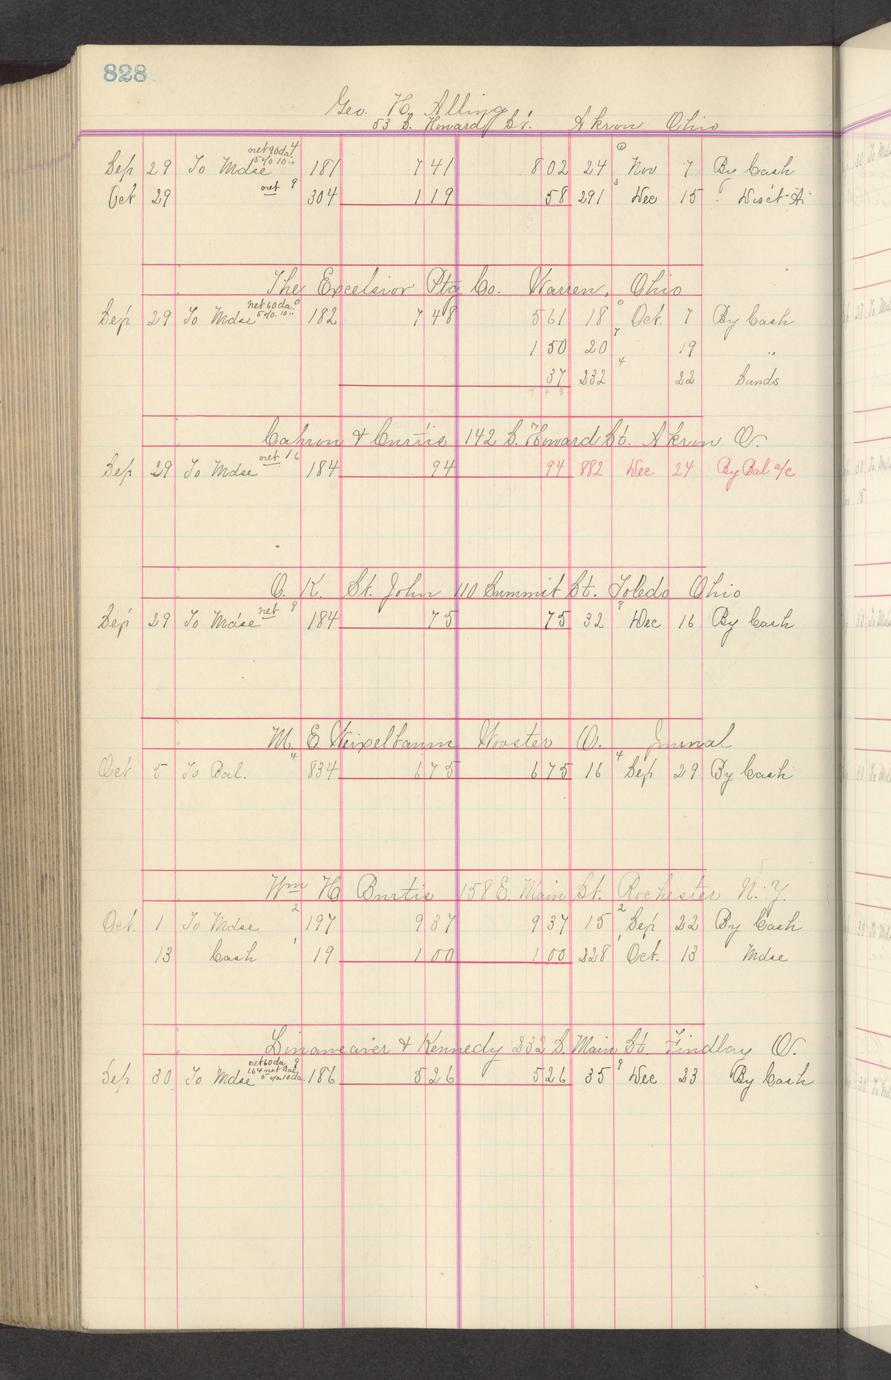 828
Geo. H. Alling
53 S. Howard St. Akron Ohio
net 90 da 4
5% 10
Sep 29 To Mdse 181 7 41 8 02 24 Nov 7 By Cash
Oct 29 net 9 304 1 19 58 291 Dec 15 Disct
The Excelsior Ptg Co. Warren, Ohio
net 60 da
5% 10
Sep 29 To Mdse 182 7 48 5 61 18 Oct. 7 By Cash
1 50 20 19 "
37 232 22 Sunds
Cahron & Curtis 142 S. Howard St. Akron O.
Sep 29 To Mdse net 16 184 94 94 882 Dec 24 By Bal a/c
O. K. St. John 110 Summit St. Toledo Ohio
Sep 29 To Mdse net 9 184 75 75 32 9 Dec 16 By Cash
M. E. Weixelbaum Wooster O. Journal
Oct 5 To Bal. 4 834 6 75 6 75 16 4 Sep 29 By Cash
Wm H Burtis 158 E. Main St. Rochester N.Y.
Oct. 1 To Mdse 2 197 9 37 9 37 15 2 Sep 22 By Cash
13 Cash 1 19 1 00 1 00 228 1 Oct. 13 Mdse
Linaweaver & Kennedy 332 S. Main St. Findlay O.
net 60 da 9
Sep 30 To Mdse 186 5 26 5 26 35 9 Dec 23 By Cash